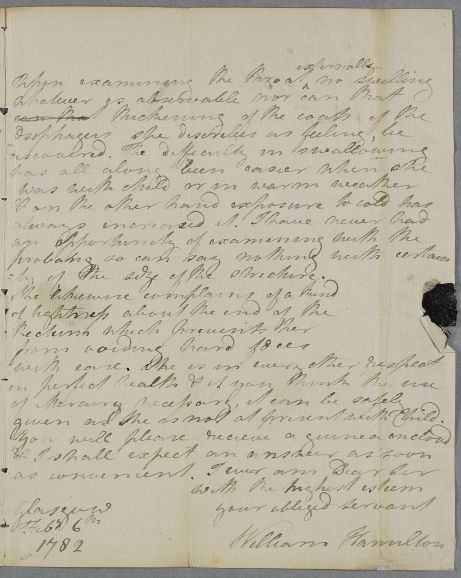 Upon examining the throat externally no swelling
whatever is observable nor can that
can that thickening of the coats of the
Esophagus she describes as feeling, be
discovered. The difficulty in swallowing
has all along been easier when she
was with child or in warm weather
& on the other hand exposure to cold has
always increased it. I have never had
an opportunity of examining with the
probang so can say nothing with certain
-ty of the size of the stricture.
She likewise complains of a kind
of tightness about the end of the
Rectum which prevents her
from voiding hard fæces
with ease. She is in every other respect
in perfect health & if you think the use
of Mercury necessary, it can be safely
given as she is not at present with Child
You will please recieve a guinea enclosd
& I shall expect an answer as soon
as convenient. I ever am Dear Sir
with the highest esteem
Glasgow
your obliged servant
Febr. 6th
1782
William Hamilton